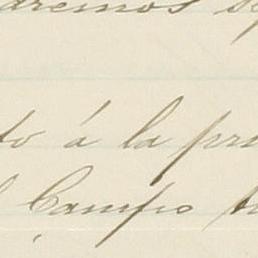 aremos s
to á la pr
l Campo t